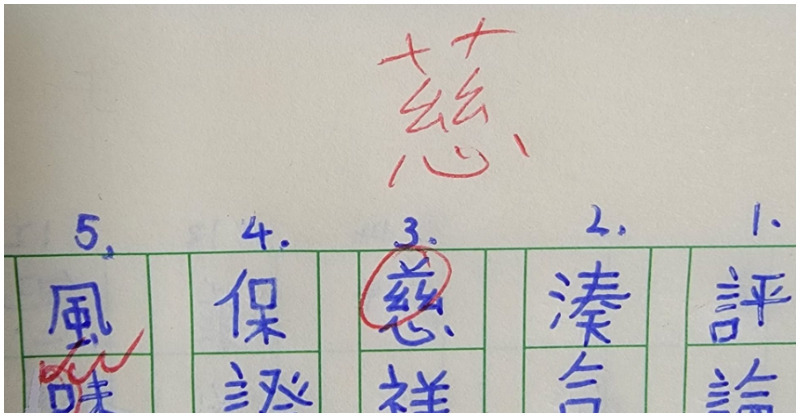 慈
1. 評論
2. 湊合
3. 慈祥
4. 保證
5. 風味